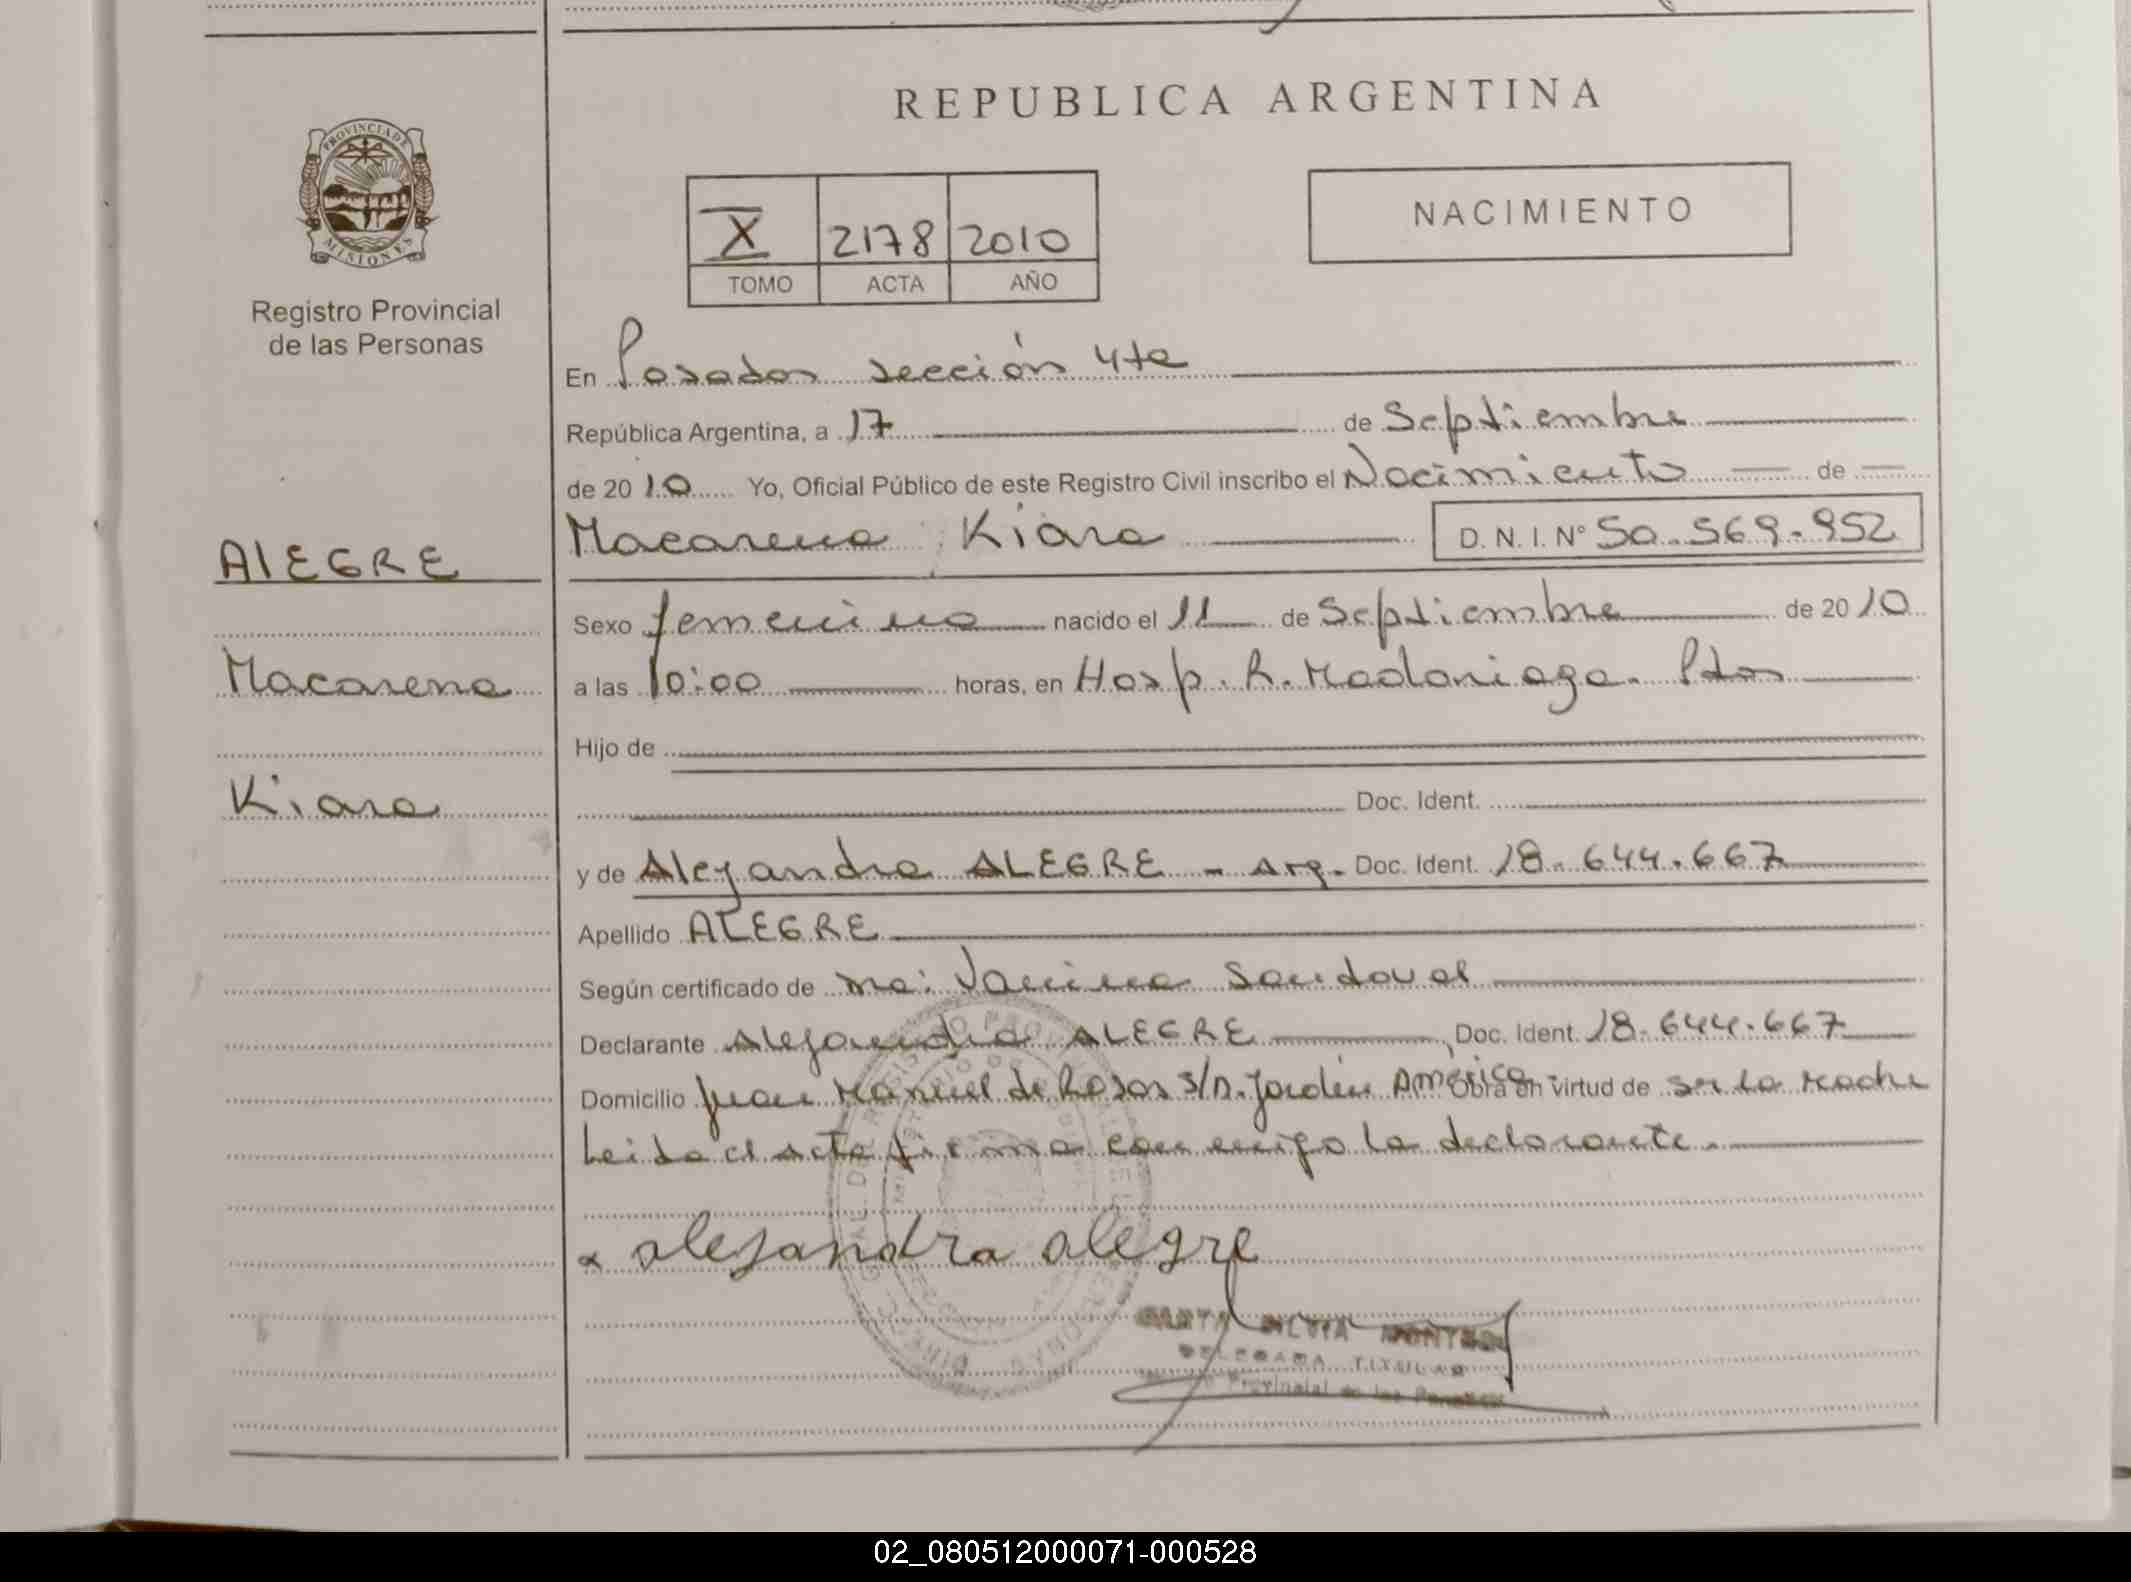 REPUBLICA ARGENTINA
PROVINCIA DE
MISIONES
Registro Provincial
de las Personas
X 2178 2010
TOMO ACTA AÑO
NACIMIENTO
En Posadas sección 4ta
República Argentina, a 17 de Septiembre
de 2010 Yo, Oficial Público de este Registro Civil inscribo el Nacimiento de
Macarena Kiara D.N.I. Nº 50.569.952
ALEGRE
Macarena
Kiara
Sexo femenino nacido el 11 de Septiembre de 2010
a las 10:00 horas, en Hosp. R. Madariaga. Pdas
Hijo de
Doc. Ident.
y de Alejandra ALEGRE - Arg. Doc. Ident. 18.644.667
Apellido ALEGRE
Según certificado de Yanina Sandoval
Declarante Alejandra ALEGRE, Doc. Ident. 18.644.667
Domicilio Juan Manuel de Rosas S/n. Jardín América. Obra en virtud de ser la madre
Leida el acta firma conmigo la declarante.
alejandra alegre
SILVIA
DELEGADA TITULAR
Provincial de las Personas
02_080512000071-000528